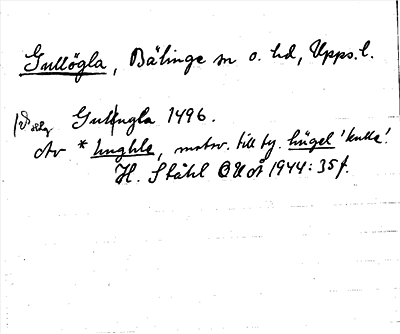 Gullögla, Bälinge sn o. hd, Upps. l.
Gullugla 1496.
Av *hughle, motsv. till ty. hügel 'kulle'.
H. Ståhl OUÅ 1944: 35 f.